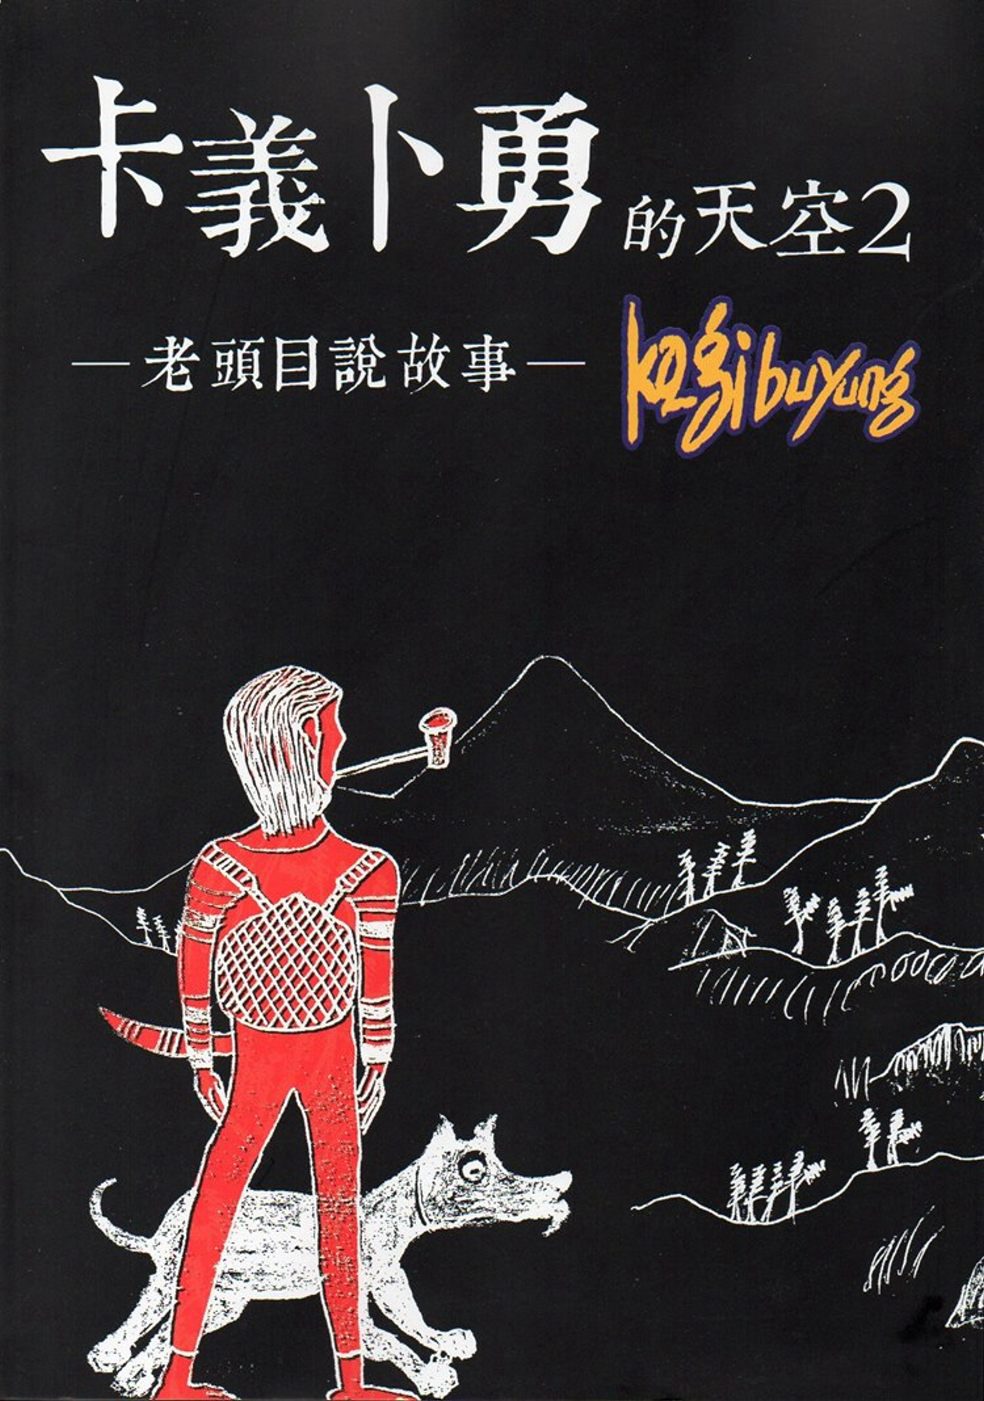 卡義卜勇的天空2
—老頭目說故事—
kagi buyung